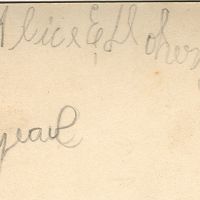 Alice E. Doher
year